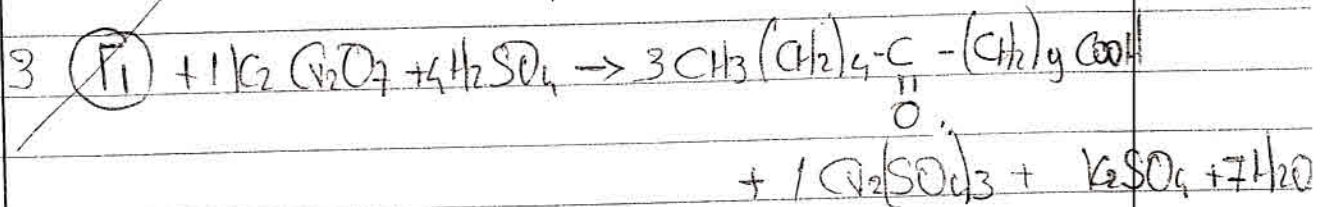 3 (P1) + 1 K2Cr2O7 + 4H2SO4 → 3 CH3(CH2)4-C-(CH2)yCOOH
O
+ 1 Cr2(SO4)3 + K2SO4 + 7H2O